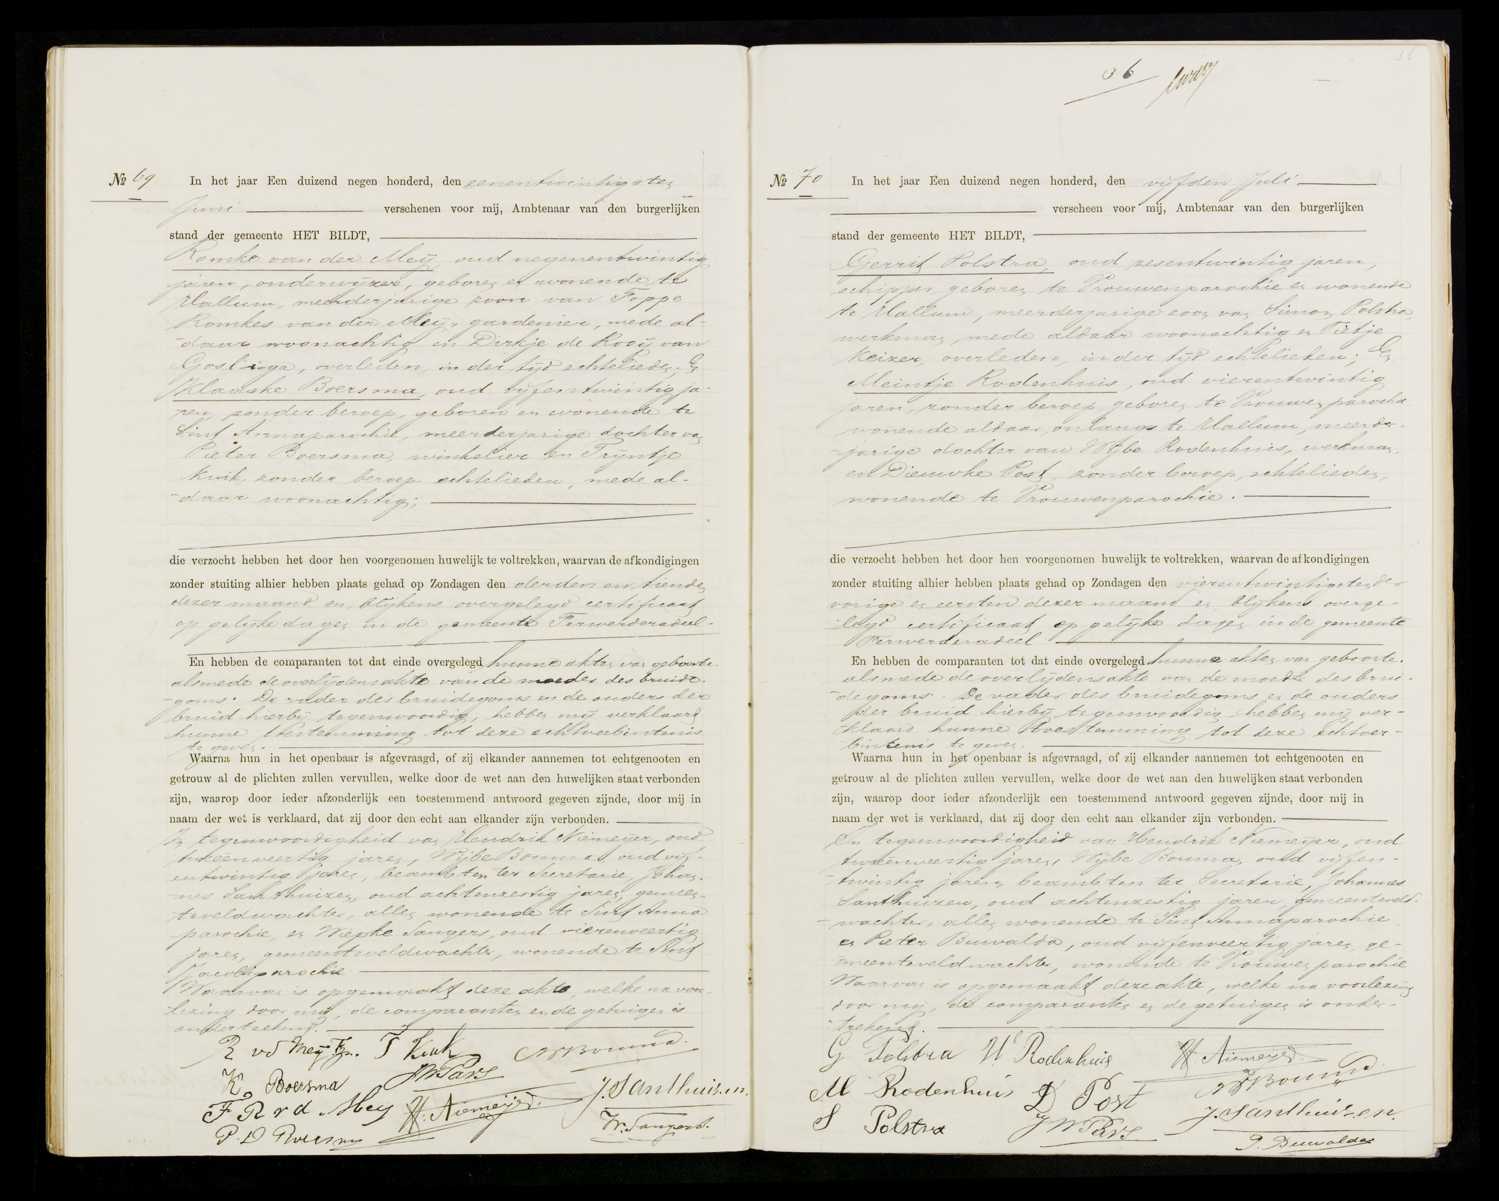 № 69 In het jaar Een duizend negen honderd, den eenentwintigsten
Juni verschenen voor mij, Ambtenaar van den burgerlijken
stand der gemeente HET BILDT,
Romke van der Meij, oud negenentwintig
jaren, onderwijzer, geboren en wonende te
Hallum, meerderjarige zoon van Foppe
Romkes van der Meij, gardenier, mede al-
daar woonachtig en Dirkje de Rooij van
Goslinga, overleden, in der tijd echtelieden. En
Klaaske Boersma, oud vijfentwintig ja-
ren, zonder beroep, geboren en wonende te
Sint Annaparochie, meerderjarige dochter van
Pieter Boersma, winkelier en Trijntje
Kuik, zonder beroep echtelieden, mede al-
daar woonachtig;
die verzocht hebben het door hen voorgenomen huwelijk te voltrekken, waarvan de afkondigingen
zonder stuiting alhier hebben plaats gehad op Zondagen den derden en tienden
dezer maand en, blijkens overgelegd certificaat
op gelijke dagen in de gemeente Ferwerderadeel.
En hebben de comparanten tot dat einde overgelegd hunne akten van geboorte
alsmede de overlijdensakte van de moeder des bruide-
goms. De vader des bruidegoms en de ouders der
bruid hierbij tegenwoordig, hebben mij verklaard
hunne toestemming tot deze echtverbintenis
te geven.
Waarna hun in het openbaar is afgevraagd, of zij elkander aannemen tot echtgenooten en
getrouw al de plichten zullen vervullen, welke door de wet aan den huwelijken staat verbonden
zijn, waarop door ieder afzonderlijk een toestemmend antwoord gegeven zijnde, door mij in
naam der wet is verklaard, dat zij door den echt aan elkander zijn verbonden.
In tegenwoordigheid van Hendrik Niemeijer, oud
tweeenveertig jaren, Wijbe Bouma, oud vijf-
entwintig jaren, beambten ter Secretarie, Johan-
nes Santhuizen, oud achtenzestig jaren, gemeen-
teveldwachter, allen wonende te Sint Anna
parochie, en Wepke Sangers, oud vierenveertig
jaren, gemeenteveldwachter, wonende te Sint
Jacobiparochie
Waarvan is opgemaakt deze akte, welke na voor-
lezing door mij, de comparanten en de getuigen is
onderteekend.
R vd Meij Fz. T Kuik WBouma.
K. Boersma JWPars J. Santhuizen.
F R v d Meij H. Niemeijer. W. Sangers.
P D Boersma
06
№ 70 In het jaar Een duizend negen honderd, den vijfden Juli
verscheen voor mij, Ambtenaar van den burgerlijken
stand der gemeente HET BILDT,
Gerrit Polstra, oud zesentwintig jaren,
schipper geboren te Vrouwenparochie en wonende
te Hallum, meerderjarige zoon van Simon Polstra
werkman, mede aldaar woonachtig en Pietje
Keizer, overleden, in der tijd echtelieden; En
Meintje Rodenhuis, oud vierentwintig
jaren, zonder beroep geboren te Vrouwenparochie
wonende aldaar, onlangs te Hallum, meerder-
jarige dochter van Wijbe Rodenhuis, werkman
en Dieuwke Post, zonder beroep, echtelieden,
wonende te Vrouwenparochie.
die verzocht hebben het door hen voorgenomen huwelijk te voltrekken, waarvan de afkondigingen
zonder stuiting alhier hebben plaats gehad op Zondagen den vierentwintigsten der
vorige en eersten dezer maand en, blijkens overge-
legd certificaat op gelijke dagen in de gemeente
Ferwerderadeel
En hebben de comparanten tot dat einde overgelegd hunne akten van geboorte.
alsmede de overlijdensakte van de moeder des brui-
degoms. De vader des bruidegoms en de ouders
der bruid hierbij tegenwoordig hebben mij ver-
klaard hunne toestemming tot deze echtver-
bintenis te geven.
Waarna hun in het openbaar is afgevraagd, of zij elkander aannemen tot echtgenooten en
getrouw al de plichten zullen vervullen, welke door de wet aan den huwelijken staat verbonden
zijn, waarop door ieder afzonderlijk een toestemmend antwoord gegeven zijnde, door mij in
naam der wet is verklaard, dat zij door den echt aan elkander zijn verbonden.
In tegenwoordigheid van Hendrik Niemeijer, oud
tweeenveertig jaren, Wijbe Bouma, oud vijfen-
twintig jaren, beambten ter Secretarie, Johannes
Santhuizen, oud achtenzestig jaren, gemeenteveld-
wachter, allen wonende te Sint Annaparochie
en Pieter Buwalda, oud vijfenveertig jaren, ge-
meenteveldwachter, wonende te Vrouwenparochie
Waarvan is opgemaakt deze akte, welke na voorlezing
door mij, de comparanten en de getuigen is onder-
teekend.
G Polstra W Rodenhuis H Niemeijer.
M Rodenhuis D Post WBouma.
S Polstra JWPars J. Santhuizen.
P. Buwalda